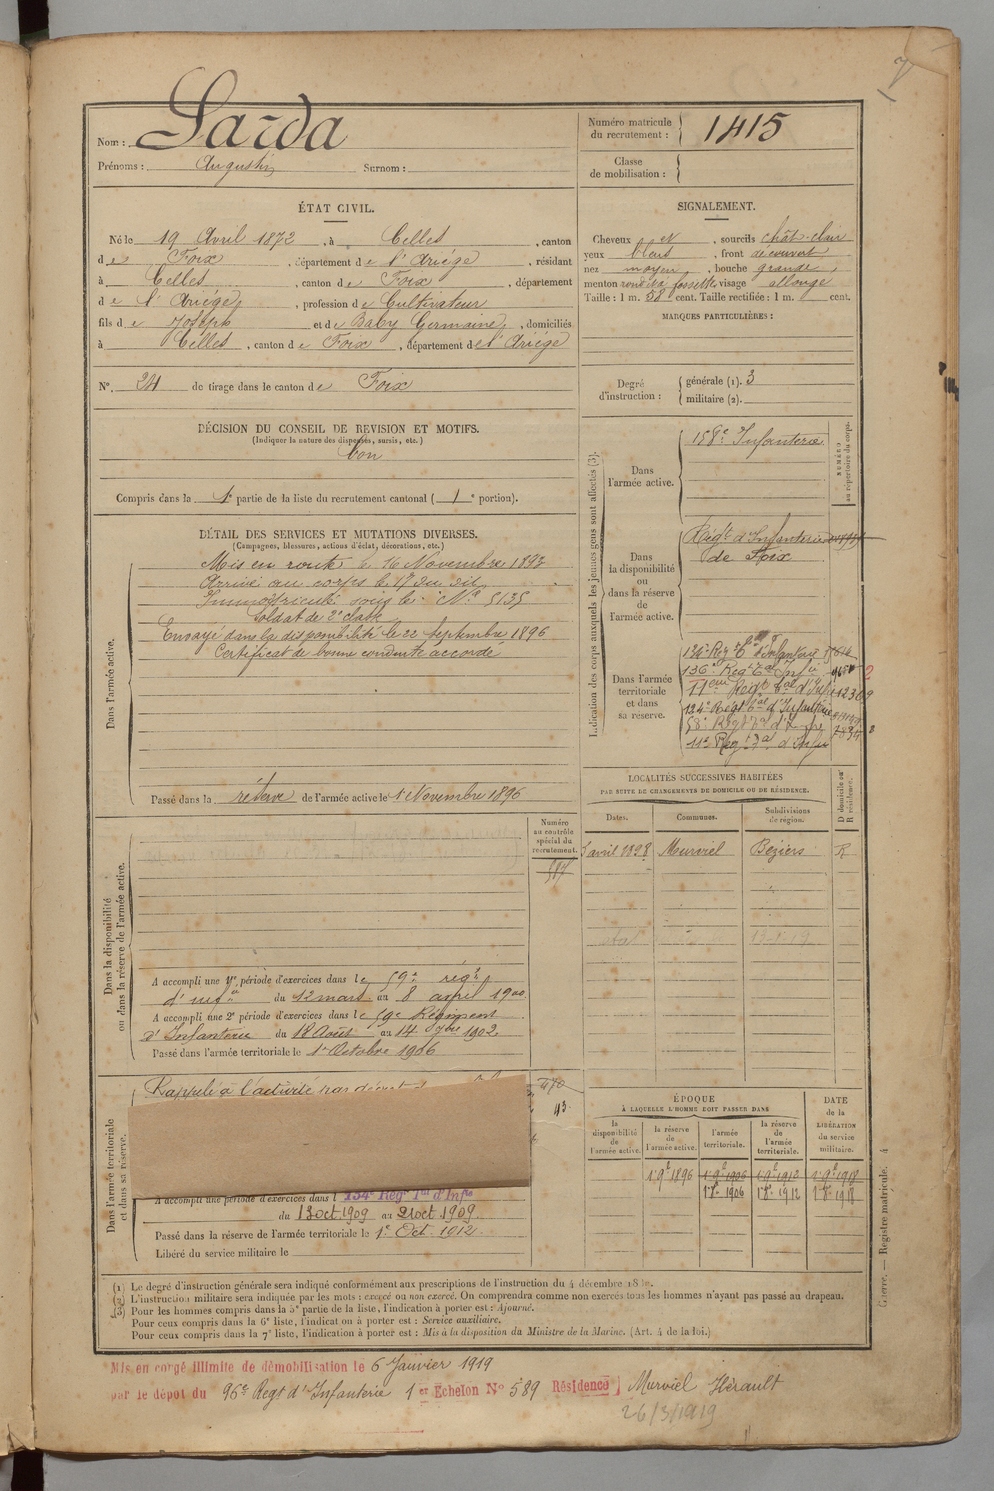 7
Nom : Sarda
Prénoms : Augustin Surnom :
Numéro matricule du recrutement : 1415
Classe de mobilisation :
ÉTAT CIVIL.
Né le 19 Avril 1872, à Celles, canton
de Foix, département de l'Ariége, résidant
à Celles, canton de Foix, département
de l'Ariége, profession de Cultivateur
fils de Joseph et de Baby Germaine, domiciliés
à Celles, canton de Foix, département de l'Ariége
N° 24 de tirage dans le canton de Foix
SIGNALEMENT.
Cheveux et, sourcils chât-clair
yeux bleus, front découvert
nez moyen, bouche grande,
menton rond à fossette visage allongé
Taille : 1 m. 58 cent. Taille rectifiée : 1 m. cent.
MARQUES PARTICULIÈRES :
Degré d'instruction : générale (1). 3
militaire (2).
DÉCISION DU CONSEIL DE REVISION ET MOTIFS.
(Indiquer la nature des dispenses, sursis, etc.)
bon
Compris dans la 1e partie de la liste du recrutement cantonal (1e portion).
DÉTAIL DES SERVICES ET MUTATIONS DIVERSES.
(Campagnes, blessures, actions d'éclat, décorations, etc.)
Dans l'armée active.
Mis en route le 16 Novembre 1893
Arrivé au corps le 17 du dit
Immatriculé sous le N° 5135
Soldat de 2e classe
Envoyé dans la disponibilité le 22 Septembre 1896
Certificat de bonne conduite accordé
Passé dans la réserve de l'armée active le 1 Novembre 1896
Indication des corps auxquels les jeunes gens sont affectés (3).
NUMÉRO au répertoire du corps.
Dans l'armée active.
158e Infanterie
Dans la disponibilité ou dans la réserve de l'armée active.
Régt d'Infanterie
de Foix
Dans l'armée territoriale et dans sa réserve.
136e Reg Tal Inf
11eme Regt Tal d'Infie 12369
134e Regt Tal d'Infanterie
58e Regt Tal d'Infie
112e Reg Tal d'Infie
LOCALITÉS SUCCESSIVES HABITÉES
PAR SUITE DE CHANGEMENTS DE DOMICILE OU DE RÉSIDENCE.
Dates. Communes. Subdivisions de région. D domicile ou R résidence.
5 avril 1898 Murviel Béziers R
Numéro au contrôle spécial du recrutement.
Dans la disponibilité ou dans la réserve de l'armée active.
A accompli une 1re période d'exercices dans le 59e régt
d'infie du 12 mars au 8 avril 1900
A accompli une 2e période d'exercices dans le 59e Régiment
d'Infanterie du 18 Août au 14 7bre 1902
Passé dans l'armée territoriale le 1er Octobre 1906
Dans l'armée territoriale et dans sa réserve.
Rappelé à l'activité par décret
A accompli une période d'exercices dans l 134e Regt Tal d'Infie
du 13 oct 1909 au 21 oct 1909
Passé dans la réserve de l'armée territoriale le 1e Oct. 1912
Libéré du service militaire le
ÉPOQUE
À LAQUELLE L'HOMME DOIT PASSER DANS
la disponibilité de l'armée active. la réserve de l'armée active. l'armée territoriale. la réserve de l'armée territoriale.
DATE de la LIBÉRATION du service militaire.
1 9e 1896 1 9e 1906 1 9e 1912 1 9e 1918
1 8e 1906 1 8e 1912 1 8e 1918
Guerre. — Registre matricule. 4
(1) Le degré d'instruction générale sera indiqué conformément aux prescriptions de l'instruction du 4 décembre 18
(2) L'instruction militaire sera indiquée par les mots : exercé ou non exercé. On comprendra comme non exercés tous les hommes n'ayant pas passé au drapeau.
(3) Pour les hommes compris dans la 5e partie de la liste, l'indication à porter est : Ajourné.
Pour ceux compris dans la 6e liste, l'indication à porter est : Service auxiliaire.
Pour ceux compris dans la 7e liste, l'indication à porter est : Mis à la disposition du Ministre de la Marine. (Art. 4 de la loi.)
Mis en congé illimité de démobilisation le 6 Janvier 1919
par le dépôt du 96e Regt d'Infanterie 1er Echelon N° 589 Résidence Murviel Hérault
26/3/1919